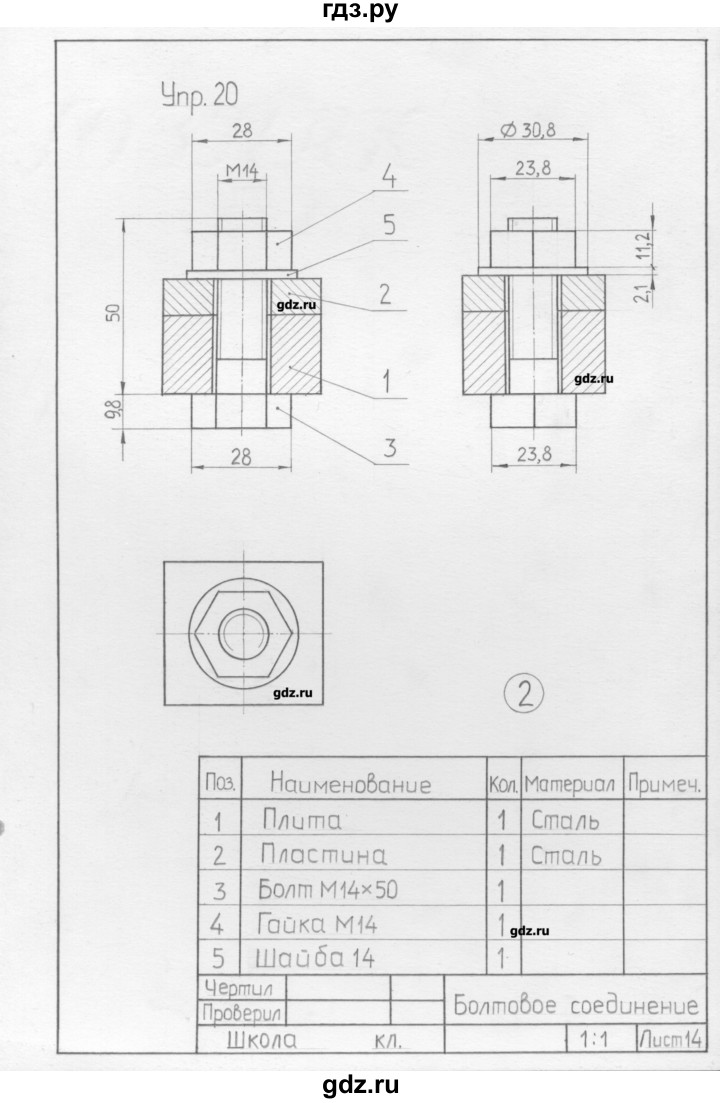 гдз.ру
Упр. 20
28
M14
4
5
50
2
1
9,8
3
28
Ø 30,8
23,8
11,2
2,1
23,8
gdz.ru
gdz.ru
gdz.ru
2
Поз. Наименование Кол. Материал Примеч.
1 Плита 1 Сталь
2 Пластина 1 Сталь
3 Болт М14×50 1
4 Гайка М14 1
gdz.ru
5 Шайба 14 1
Чертил
Проверил
Болтовое соединение
Школа кл. 1:1 Лист 14
gdz.ru